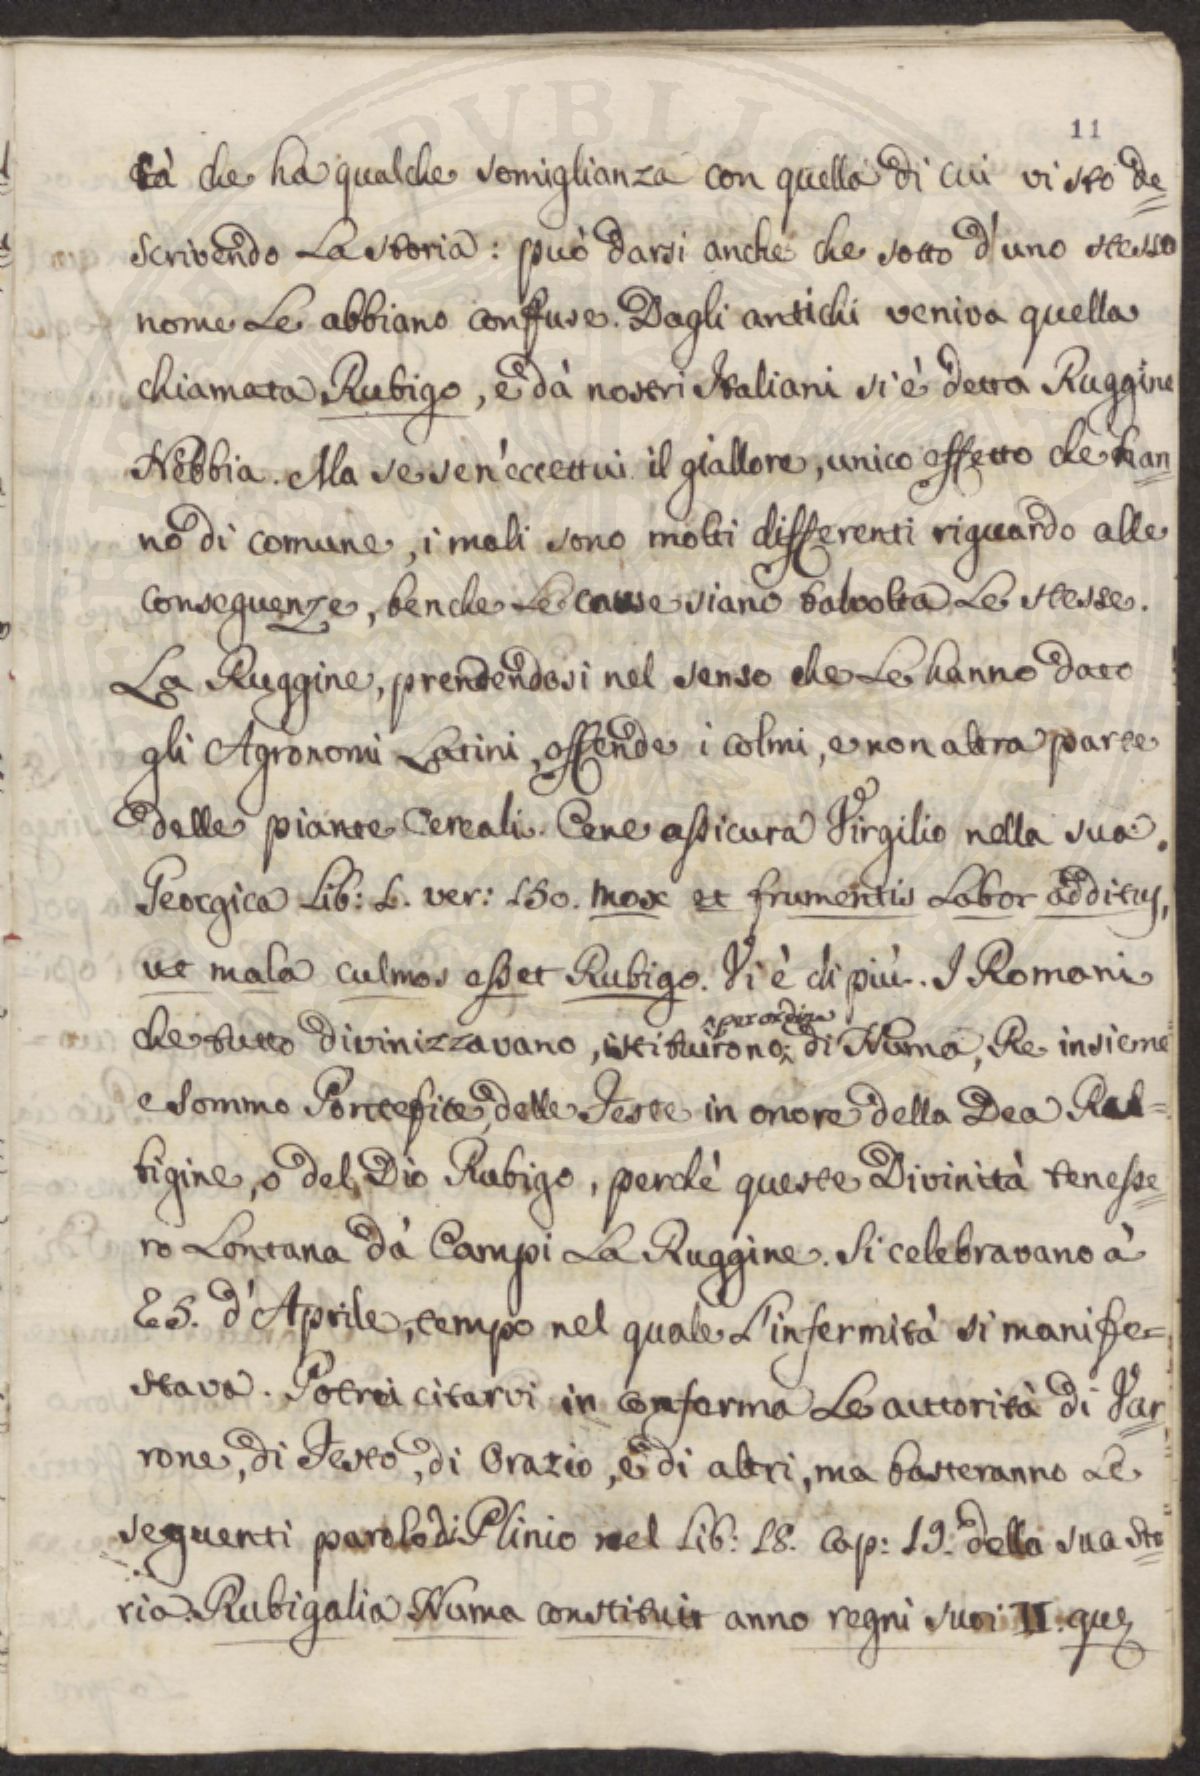 11
tà che ha qualche somiglianza con quella di cui vi sto de=
scrivendo La storia: può darsi anche che sotto d'uno stesso
nome Le abbiano confuse. Dagli antichi veniva quella
chiamata Rubigo, e dà nostri Italiani si è detta Ruggine
Nebbia. Ma se sen'eccettui il giallore, unico effetto che han=
no di comune, i mali sono molti differenti riguardo alle
conseguenze, benche Le cause siano talvolta Le stesse.
La Ruggine, prendendosi nel senso che Le hanno dato
gli Agronomi Latini, offende i colmi, e non altra parte
delle piante Cereali. Cene assicura Virgilio nella sua
Georgica Lib: 1. ver: 150. mox et frumentis Labor additus,
ut mala culmos esset Rubigo. Vi è di più. I Romani
che tutto divinizzavano, istituirono, per ordine di Numa, Re insieme
e Sommo Pontefice, delle Feste in onore della Dea Ru=
bigine, o del Dio Rubigo, perchè queste Divinità tenesse=
ro Lontana dà Campi La Ruggine. Si celebravano à
25. d'Aprile, tempo nel quale L'infermità si manife=
stava. Potrei citarvi in conferma Le auttorità di Var=
rone, di Festo, di Orazio, e di altri, ma basteranno Le
seguenti parole di Plinio nel Lib: 18. Cap: 19. della sua Sto=
ria. Rubigalia Numa constituit anno regni sui II. que